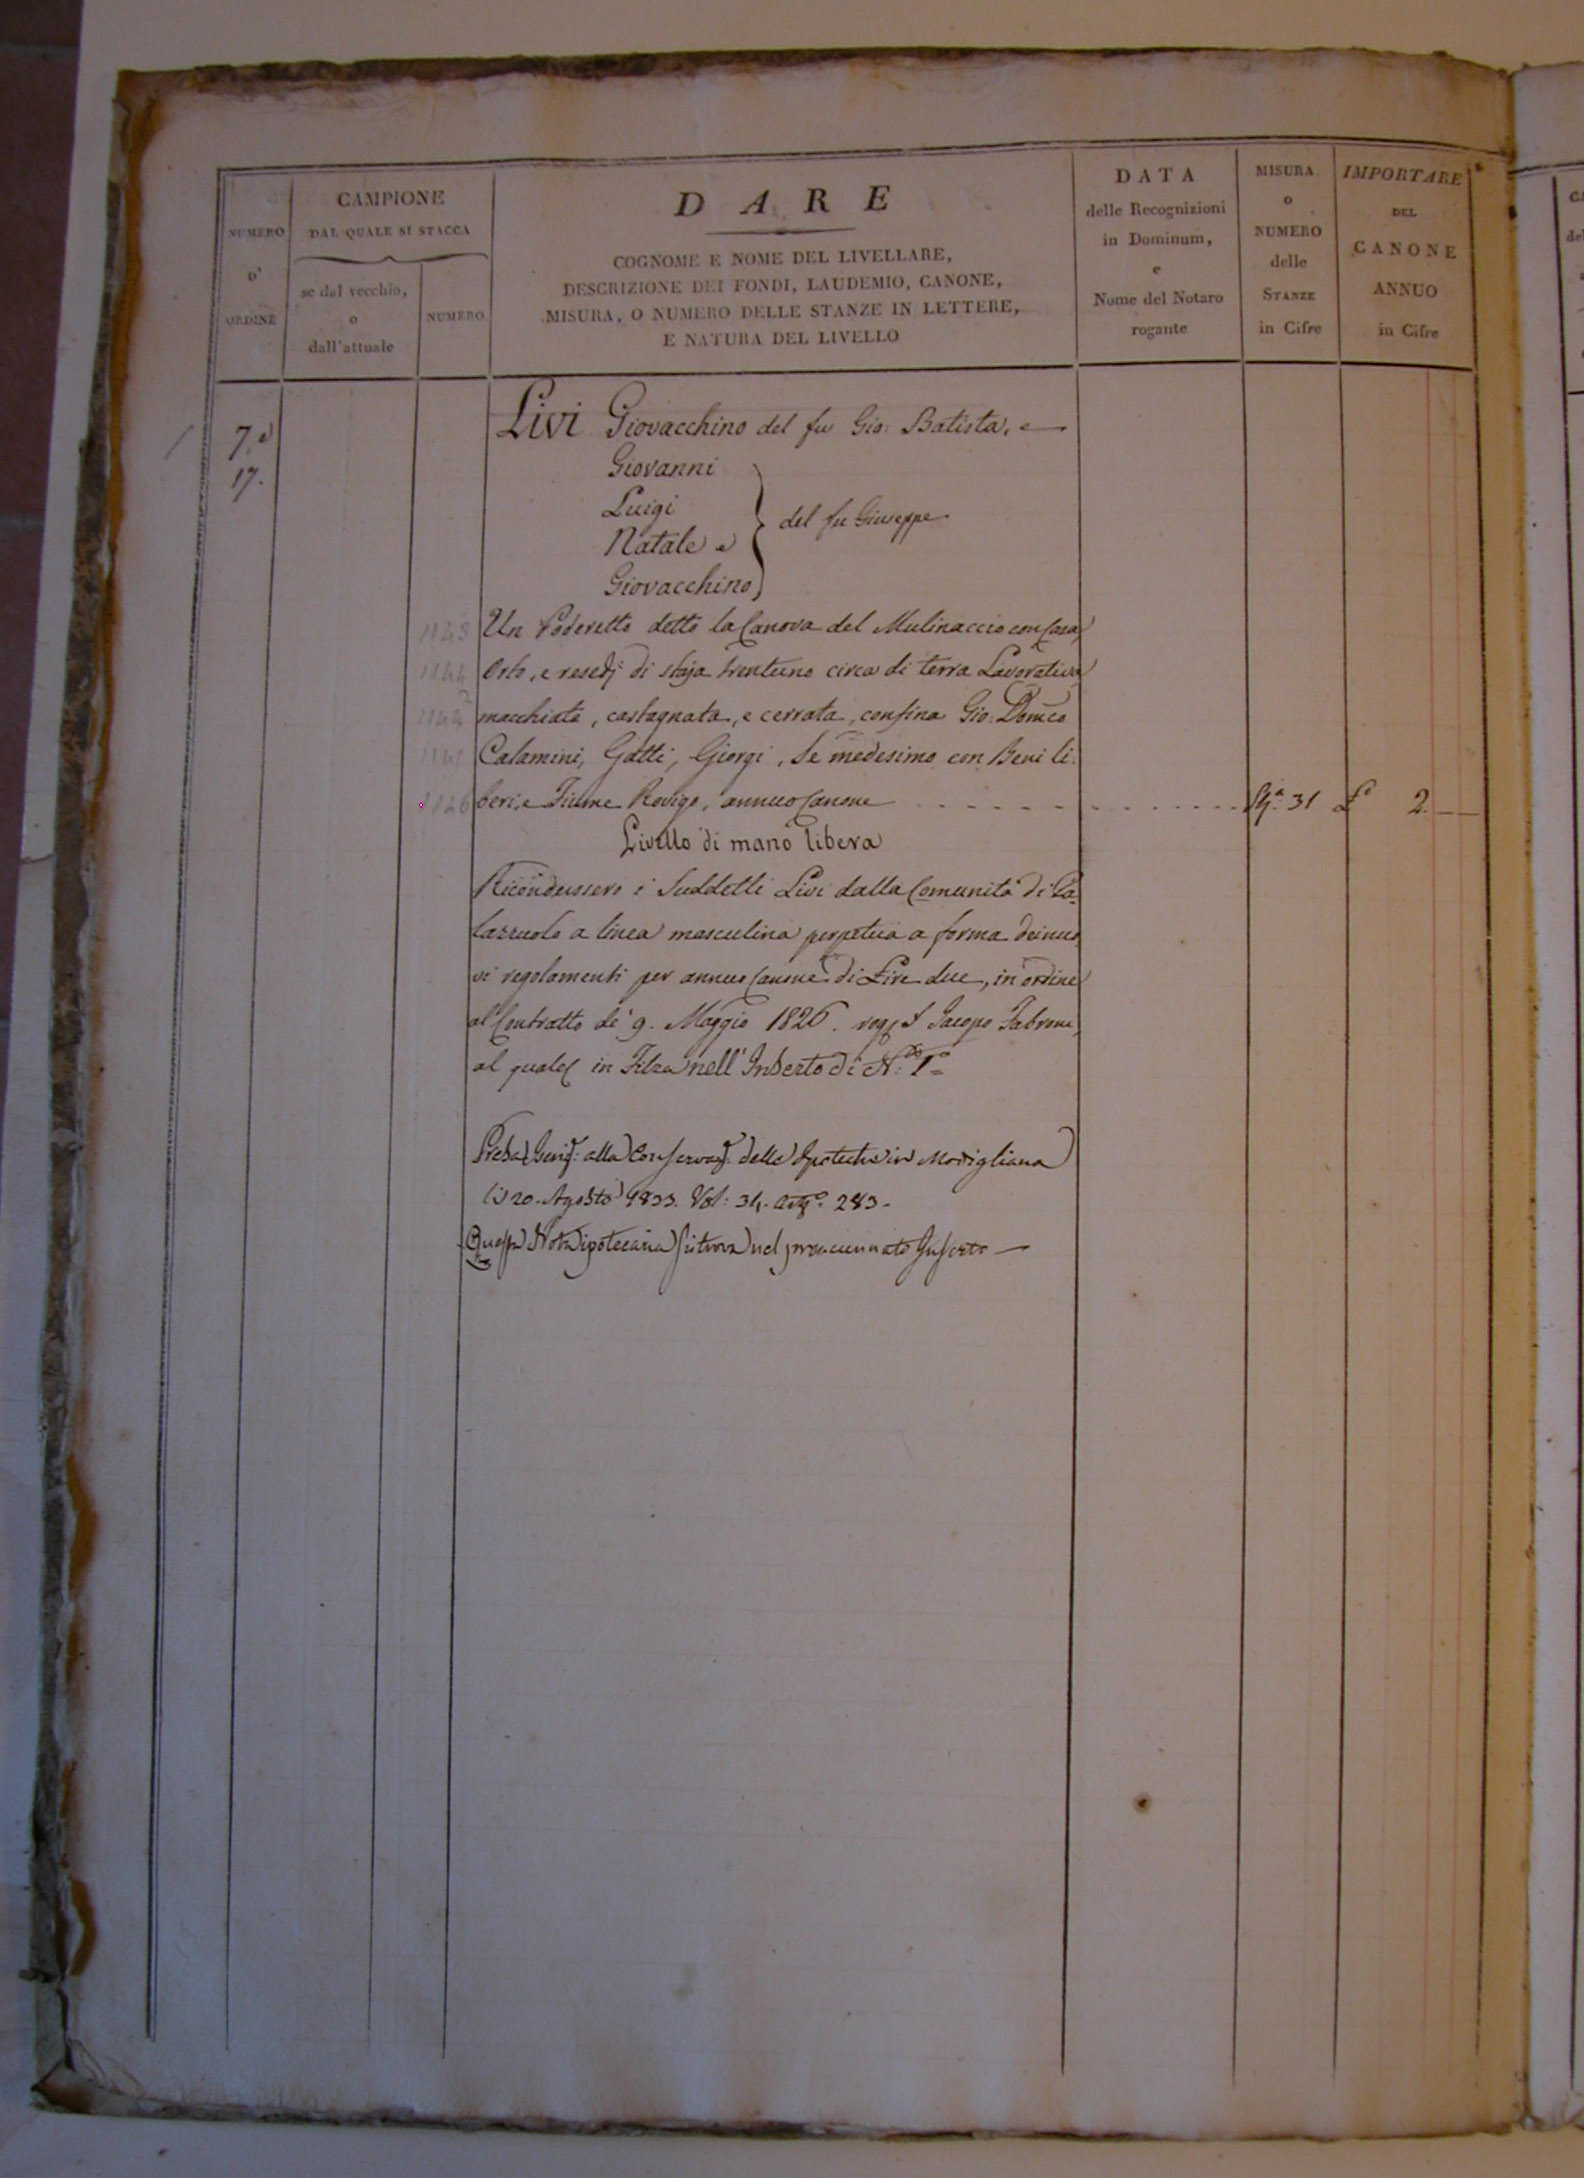 NUMERO
D'
ORDINE
CAMPIONE
DAL QUALE SI STACCA
se dal vecchio,
o
dall'attuale
NUMERO
DARE
COGNOME E NOME DEL LIVELLARE,
DESCRIZIONE DEI FONDI, LAUDEMIO, CANONE,
MISURA, O NUMERO DELLE STANZE IN LETTERE,
E NATURA DEL LIVELLO
DATA
delle Recognizioni
in Dominum,
e
Nome del Notaro
rogante
MISURA
o
NUMERO
delle
STANZE
in Cifre
IMPORTARE
DEL
CANONE
ANNUO
in Cifre
7. e
17.
Livi Giovacchino del fu Gio: Batista, e
Giovanni
Luigi
Natale e
Giovacchino
del fu Giuseppe
Un Poderetto detto la Canova del Mulinaccio con Casa
Orto, e resedj di staja trentuno circa di terra Lavorativa
macchiata, castagnata, e cerrata, confina Gio: Dom̃co
Calamini, Gatti, Giorgi, Se medesimo con Beni li:
beri, e Fiume Rovigo, annuo Canone Sta. 31 £ 2
Livello di mano libera
Ricondussero i Suddetti Livi dalla Comunità di Pa-
lazzuolo a linea masculina perpetua a forma dei nuo
vi regolamenti per annuo Canone di Lire due, in ordine
al Contratto de' 9. Maggio 1826. Jacopo Fabroni
al quale in Filza nell'Inserto di N:o 1o
Presa alla delle Ipoteche in Modigliana
li 20. Agosto 1833. Vol: 31. 283.
Questa Nota ipotecaria si trova nel Inserto